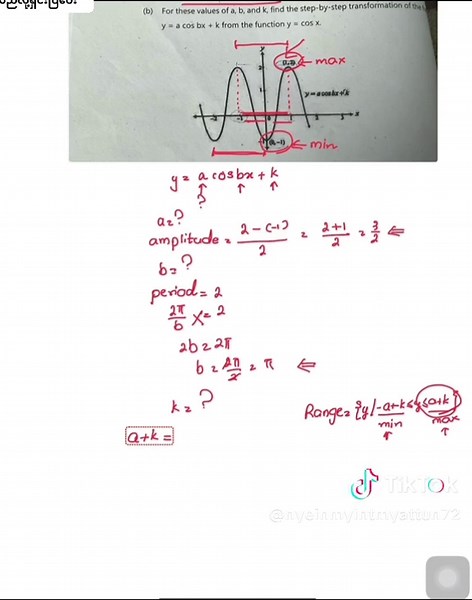 (b) For these values of a, b, and k, find the step-by-step transformation of the
y = a cos bx + k from the function y = cos x.
max
y = a cos bx + k
min
y = a cos bx + k
?
a = ?
amplitude = 2-(-1)/2 = 2+1/2 = 3/2 ⇐
b = ?
period = 2
2π/b = 2
2b = 2π
b = 2π/2 = π ⇐
k = ?
Range = {y / -a+k ≤ y ≤ a+k}
min
max
a+k =
TikTok